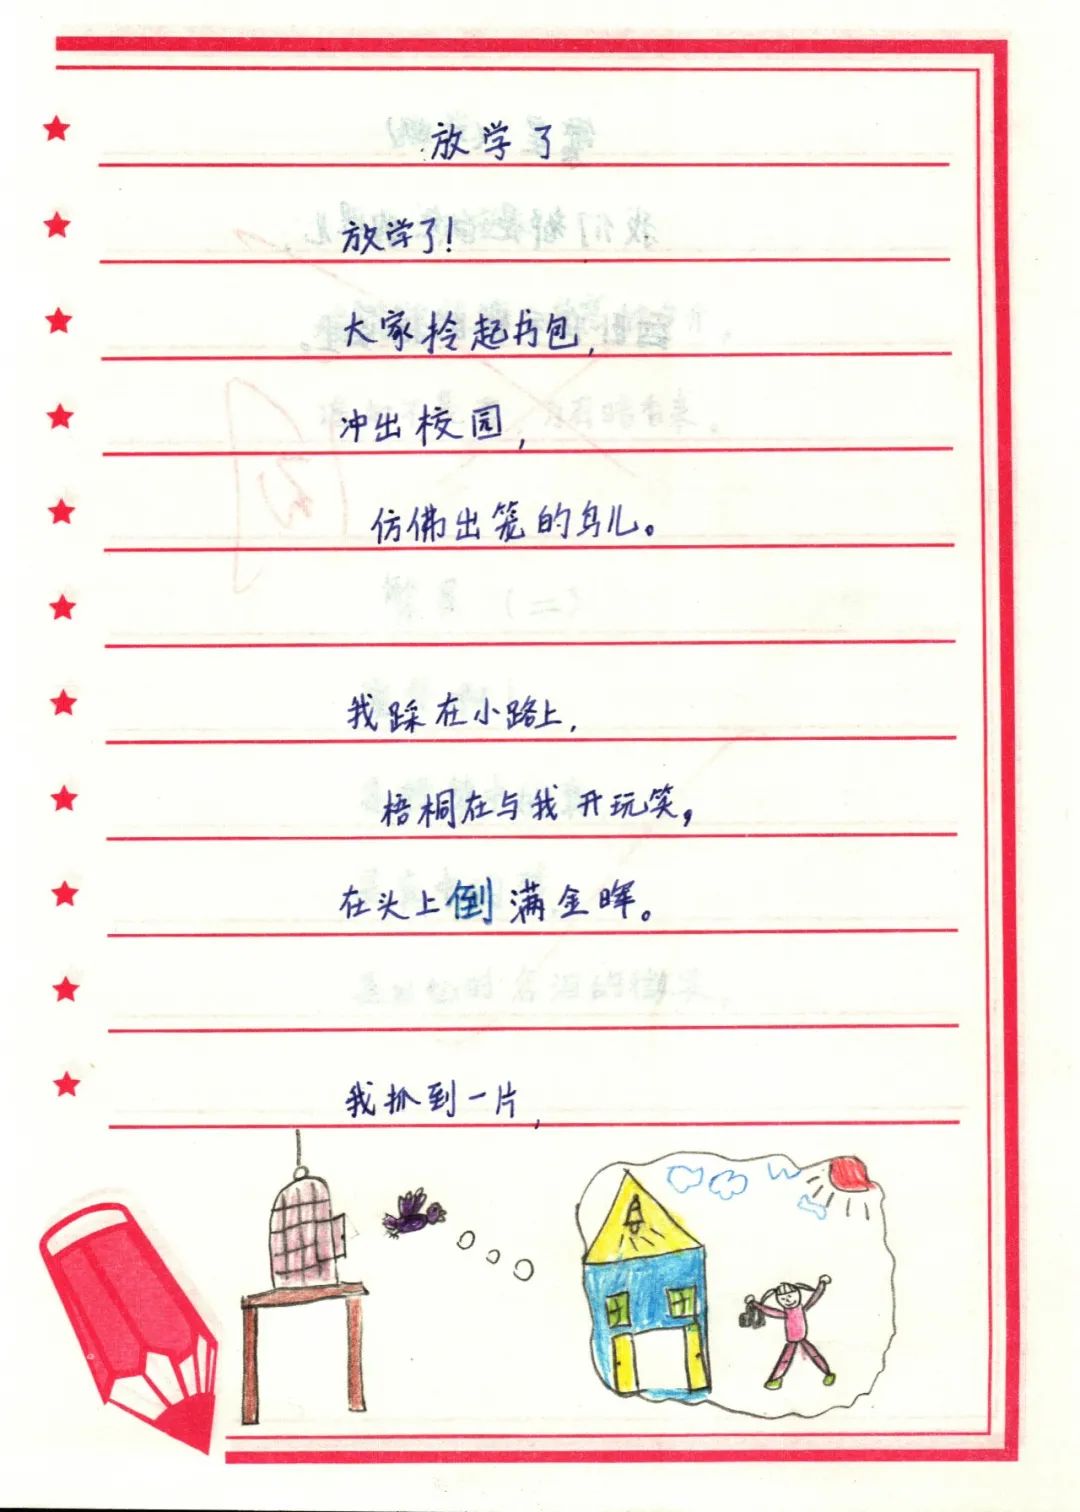 放学了
放学了!
大家拎起书包,
冲出校园,
仿佛出笼的鸟儿。
我踩在小路上,
梧桐在与我开玩笑,
在头上倒满金晖。
我抓到一片,